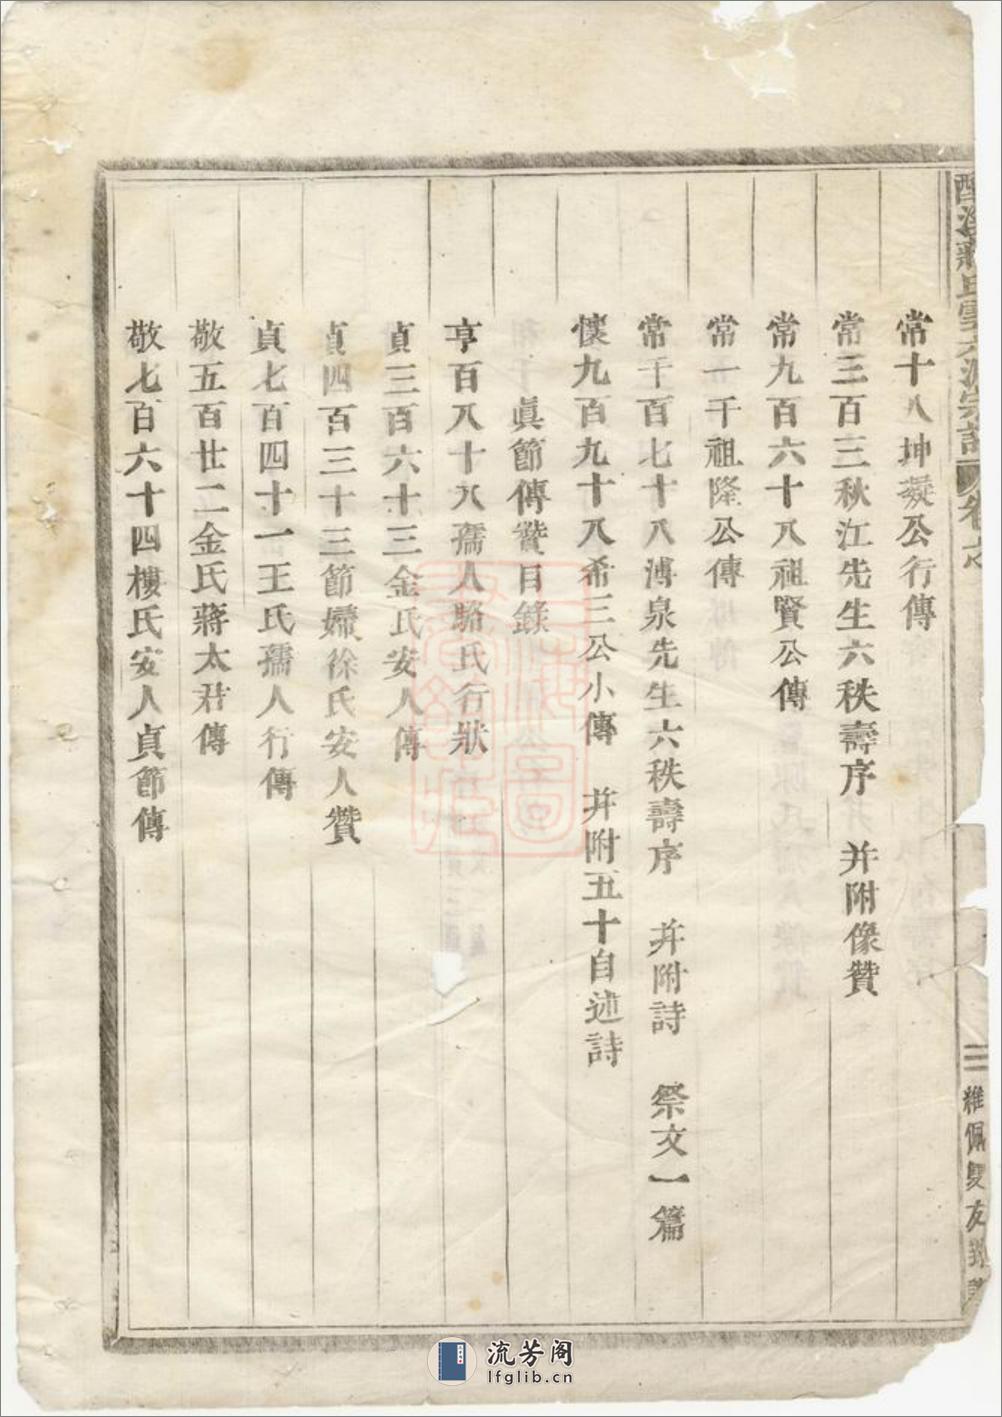 常十八坤凝公行傳
常三百三秋江先生六秩壽序 并附像贊
常九百六十八祖賢公傳
常一千祖隆公傳
常千百七十八溥泉先生六秩壽序 并附詩 祭文一篇
懷九百九十八希三公小傳 并附五十自述詩
眞節傳贊目錄
亨百八十八孺人駱氏行狀
貞三百六十三金氏安人傳
貞四百三十三節婦徐氏安人贊
貞七百四十一王氏孺人行傳
敬五百廿二金氏蔣太君傳
敬七百六十四樓氏安人貞節傳
宗譜 卷之
二
流芳阁
lfglib.cn